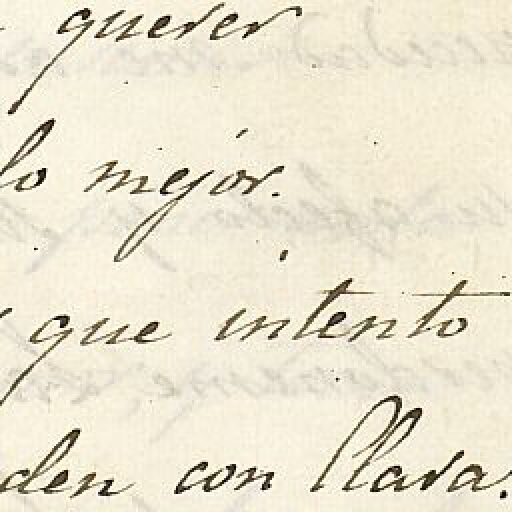 querer
lo mejor.
que intento
den con Clara.